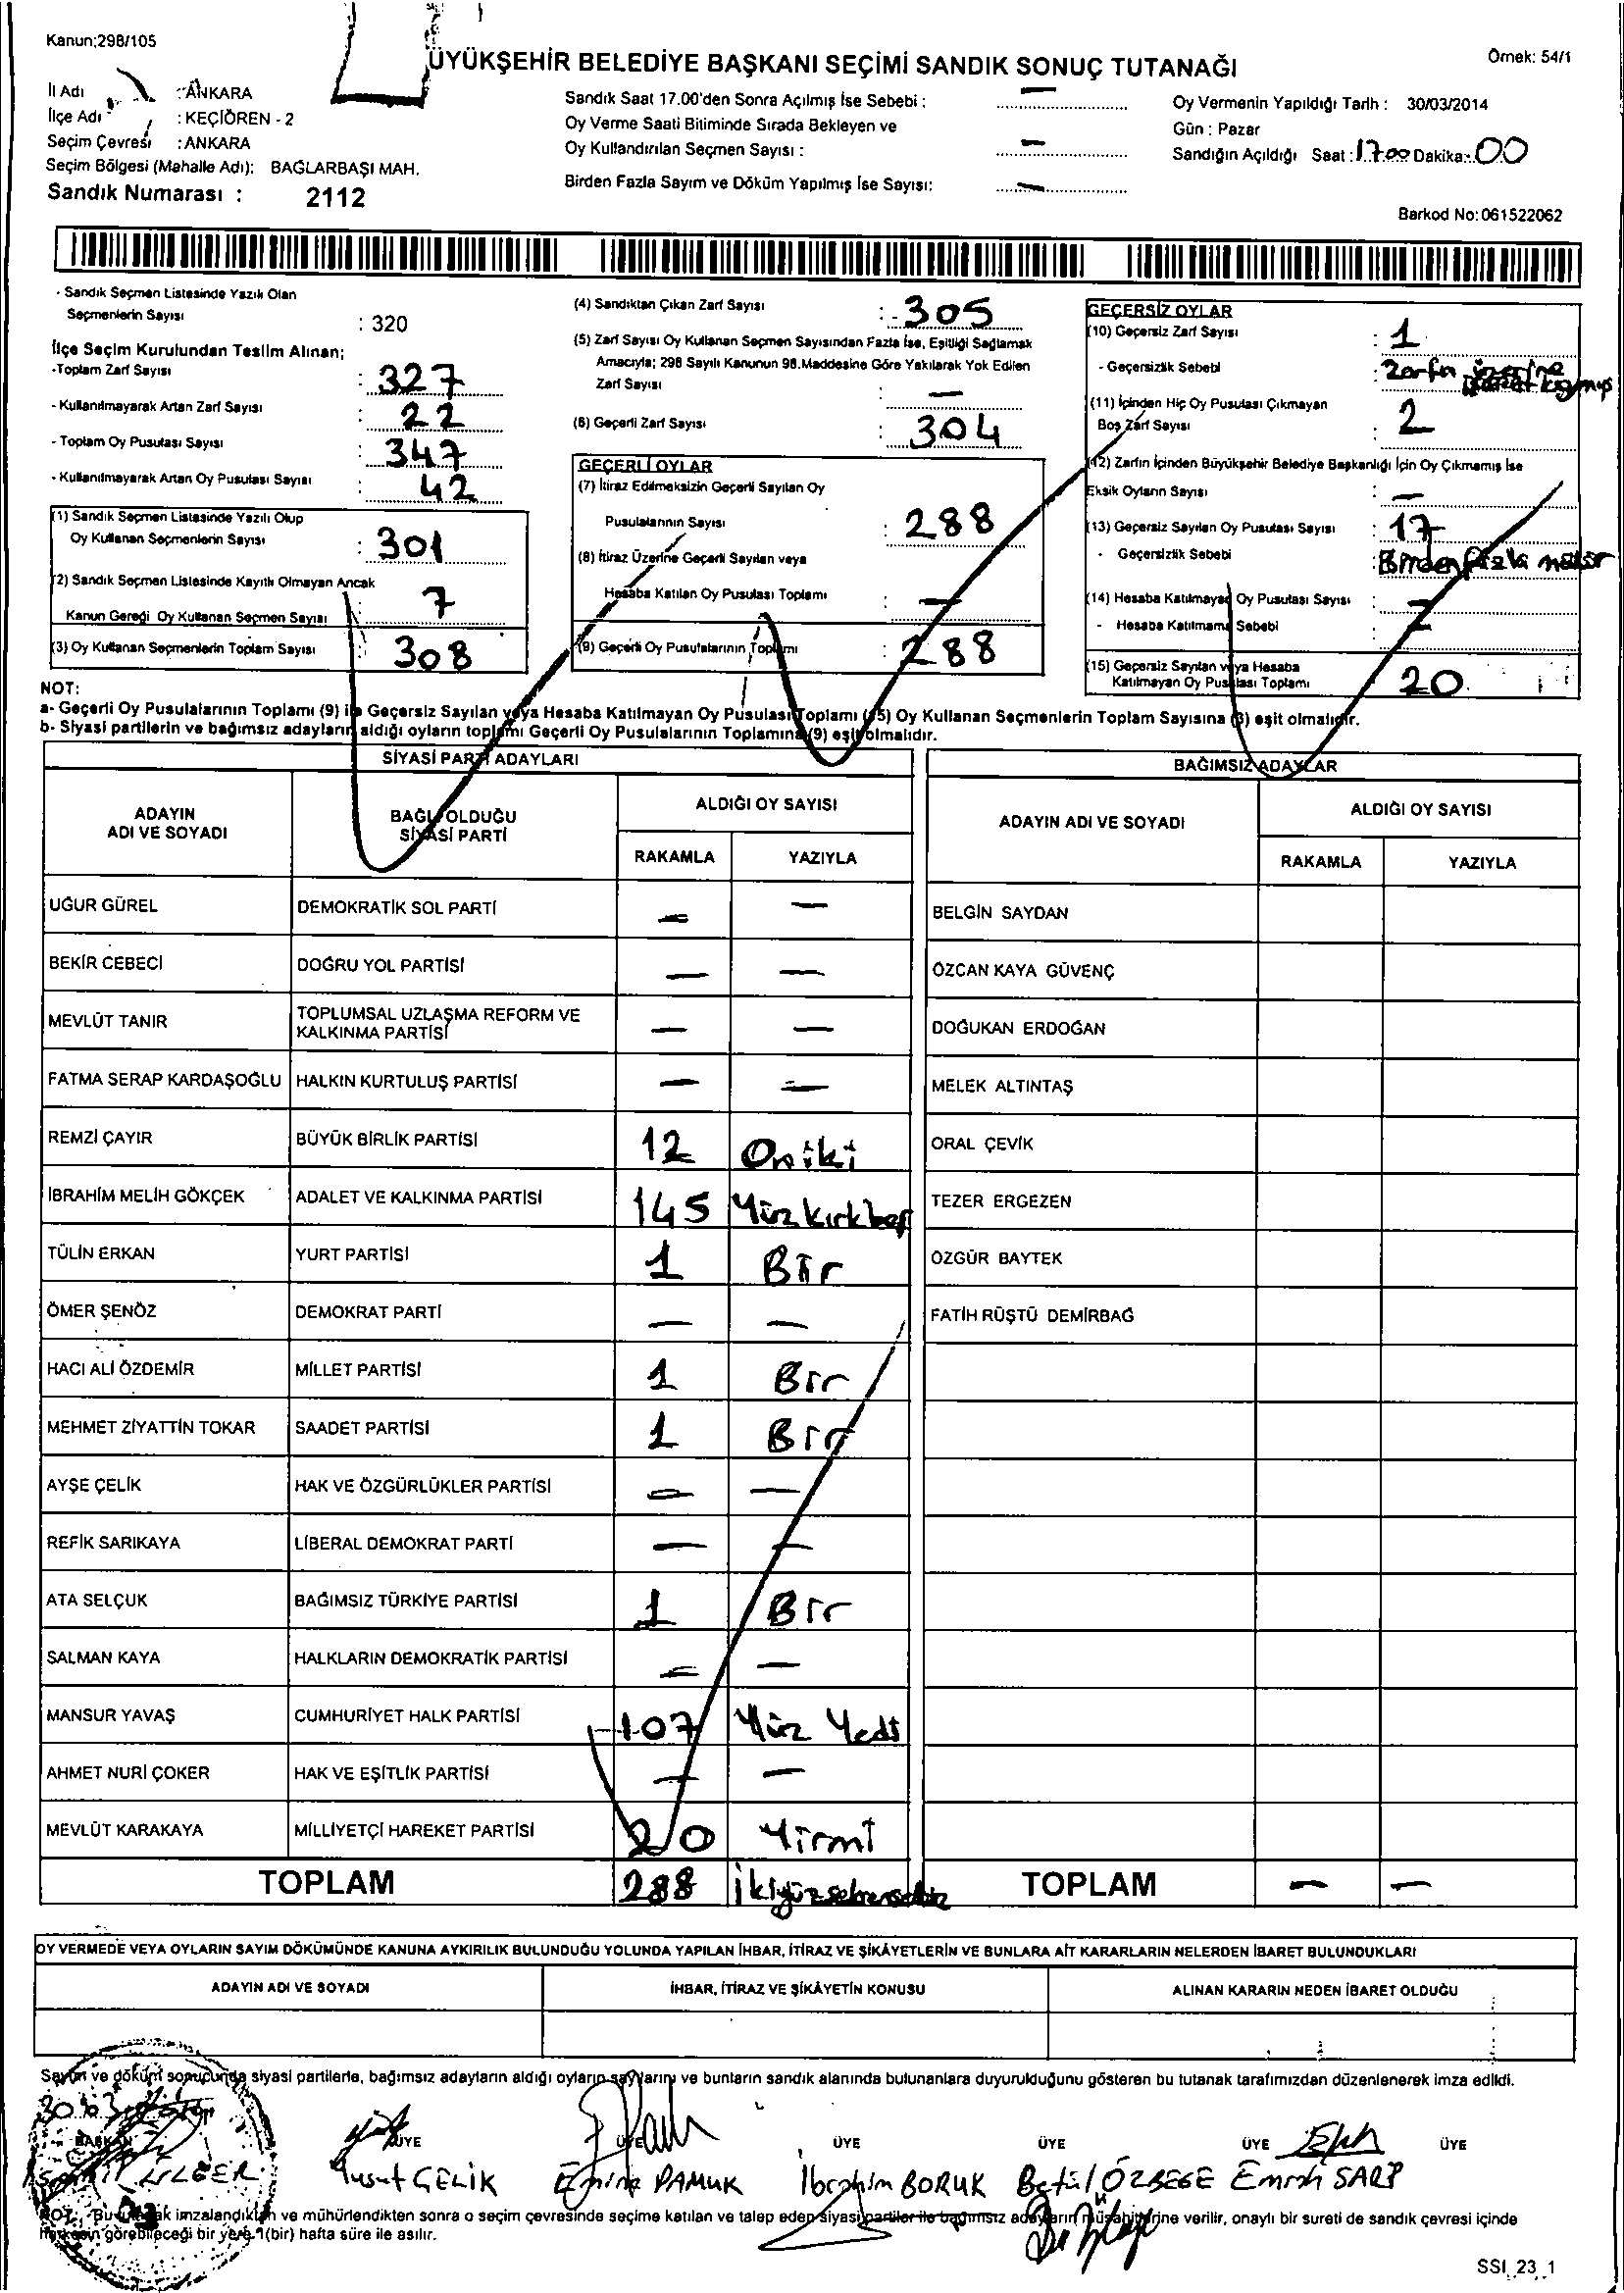 Kanun;298/105
ÜYÜKŞEHİR BELEDİYE BAŞKANI SEÇİMİ SANDIK SONUÇ TUTANAĞI
Örnek: 54/1
İl Adı : ANKARA
İlçe Adı : KEÇİÖREN - 2
Seçim Çevresi : ANKARA
Seçim Bölgesi (Mahalle Adı): BAĞLARBAŞI MAH.
Sandık Numarası : 2112
Sandık Saat 17.00'den Sonra Açılmış İse Sebebi : —
Oy Verme Saati Bitiminde Sırada Bekleyen ve
Oy Kullandırılan Seçmen Sayısı : —
Birden Fazla Sayım ve Döküm Yapılmış İse Sayısı: —
Oy Vermenin Yapıldığı Tarih : 30/03/2014
Gün : Pazar
Sandığın Açıldığı Saat : 17.00 Dakika: 00
Barkod No: 061522062
- Sandık Seçmen Listesinde Yazılı Olan
Seçmenlerin Sayısı : 320
İlçe Seçim Kurulundan Teslim Alınan;
-Toplam Zarf Sayısı : 327
- Kullanılmayarak Artan Zarf Sayısı : 22
- Toplam Oy Pusulası Sayısı : 347
- Kullanılmayarak Artan Oy Pusulası Sayısı : 42
(1) Sandık Seçmen Listesinde Yazılı Olup
Oy Kullanan Seçmenlerin Sayısı : 301
(2) Sandık Seçmen Listesinde Kayıtlı Olmayan Ancak
Kanun Gereği Oy Kullanan Seçmen Sayısı : 7
(3) Oy Kullanan Seçmenlerin Toplam Sayısı : 308
(4) Sandıktan Çıkan Zarf Sayısı : 305
(5) Zarf Sayısı Oy Kullanan Seçmen Sayısından Fazla İse, Eşitliği Sağlamak
Amacıyla; 298 Sayılı Kanunun 98.Maddesine Göre Yakılarak Yok Edilen
Zarf Sayısı : —
(6) Geçerli Zarf Sayısı : 304
GEÇERLİ OYLAR
(7) İtiraz Edilmeksizin Geçerli Sayılan Oy
Pusulalarının Sayısı : 288
(8) İtiraz Üzerine Geçerli Sayılan veya
Hesaba Katılan Oy Pusulası Toplamı : —
(9) Geçerli Oy Pusulalarının Toplamı : 288
GEÇERSİZ OYLAR
(10) Geçersiz Zarf Sayısı : 1
- Geçersizlik Sebebi : Zarfın üzerine
(11) İçinden Hiç Oy Pusulası Çıkmayan
Boş Zarf Sayısı : 2
(12) Zarfın İçinden Büyükşehir Belediye Başkanlığı İçin Oy Çıkmamış İse
Eksik Oyların Sayısı : —
(13) Geçersiz Sayılan Oy Pusulası Sayısı : 17
- Geçersizlik Sebebi : Birden fazla mühür
(14) Hesaba Katılmayan Oy Pusulası Sayısı : —
- Hesaba Katılmama Sebebi : —
(15) Geçersiz Sayılan veya Hesaba
Katılmayan Oy Pusulası Toplamı 20
NOT:
a- Geçerli Oy Pusulalarının Toplamı (9) ile Geçersiz Sayılan veya Hesaba Katılmayan Oy Pusulası Toplamı (15) Oy Kullanan Seçmenlerin Toplam Sayısına (3) eşit olmalıdır.
b- Siyasi partilerin ve bağımsız adayların aldığı oyların toplamı Geçerli Oy Pusulalarının Toplamına (9) eşit olmalıdır.
SİYASİ PARTİ ADAYLARI
BAĞIMSIZ ADAYLAR
ADAYIN ADI VE SOYADI
BAĞLI OLDUĞU SİYASİ PARTİ
ALDIĞI OY SAYISI
RAKAMLA YAZIYLA
ADAYIN ADI VE SOYADI
ALDIĞI OY SAYISI
RAKAMLA YAZIYLA
UĞUR GÜREL DEMOKRATİK SOL PARTİ — — BELGİN SAYDAN
BEKİR CEBECİ DOĞRU YOL PARTİSİ — — ÖZCAN KAYA GÜVENÇ
MEVLÜT TANIR TOPLUMSAL UZLAŞMA REFORM VE KALKINMA PARTİSİ — — DOĞUKAN ERDOĞAN
FATMA SERAP KARDAŞOĞLU HALKIN KURTULUŞ PARTİSİ — — MELEK ALTINTAŞ
REMZİ ÇAYIR BÜYÜK BİRLİK PARTİSİ 12 Oniki ORAL ÇEVİK
İBRAHİM MELİH GÖKÇEK ADALET VE KALKINMA PARTİSİ 145 Yüzkırkbeş TEZER ERGEZEN
TÜLİN ERKAN YURT PARTİSİ 1 Bir ÖZGÜR BAYTEK
ÖMER ŞENÖZ DEMOKRAT PARTİ — — FATİH RÜŞTÜ DEMİRBAĞ
HACI ALİ ÖZDEMİR MİLLET PARTİSİ 1 Bir
MEHMET ZİYATTİN TOKAR SAADET PARTİSİ 1 Bir
AYŞE ÇELİK HAK VE ÖZGÜRLÜKLER PARTİSİ — —
REFİK SARIKAYA LİBERAL DEMOKRAT PARTİ — —
ATA SELÇUK BAĞIMSIZ TÜRKİYE PARTİSİ 1 Bir
SALMAN KAYA HALKLARIN DEMOKRATİK PARTİSİ — —
MANSUR YAVAŞ CUMHURİYET HALK PARTİSİ 107 Yüz Yedi
AHMET NURİ ÇOKER HAK VE EŞİTLİK PARTİSİ — —
MEVLÜT KARAKAYA MİLLİYETÇİ HAREKET PARTİSİ 20 Yirmi
TOPLAM 288 İkiyüzseksensekiz TOPLAM — —
OY VERMEDE VEYA OYLARIN SAYIM DÖKÜMÜNDE KANUNA AYKIRILIK BULUNDUĞU YOLUNDA YAPILAN İHBAR, İTİRAZ VE ŞİKÂYETLERİN VE BUNLARA AİT KARARLARIN NELERDEN İBARET BULUNDUKLARI
ADAYIN ADI VE SOYADI İHBAR, İTİRAZ VE ŞİKÂYETİN KONUSU ALINAN KARARIN NEDEN İBARET OLDUĞU
Sayım ve döküm sonucunda siyasi partilerle, bağımsız adayların aldığı oyların sayılarını ve bunların sandık alanında bulunanlara duyurulduğunu gösteren bu tutanak tarafımızdan düzenlenerek imza edildi.
BAŞKAN ÜYE ÜYE ÜYE ÜYE ÜYE ÜYE
Yusuf ÇELİK Emine PAMUK İbrahim BORUK Betül ÖZBEGE Emrah SARP
NOT: Bu tutanak imzalandıktan ve mühürlendikten sonra o seçim çevresinde seçime katılan ve talep eden siyasi partiler ile bağımsız adayların müşahitlerine verilir, onaylı bir sureti de sandık çevresi içinde
herkesin görebileceği bir yere 1(bir) hafta süre ile asılır.
SSI_23_1